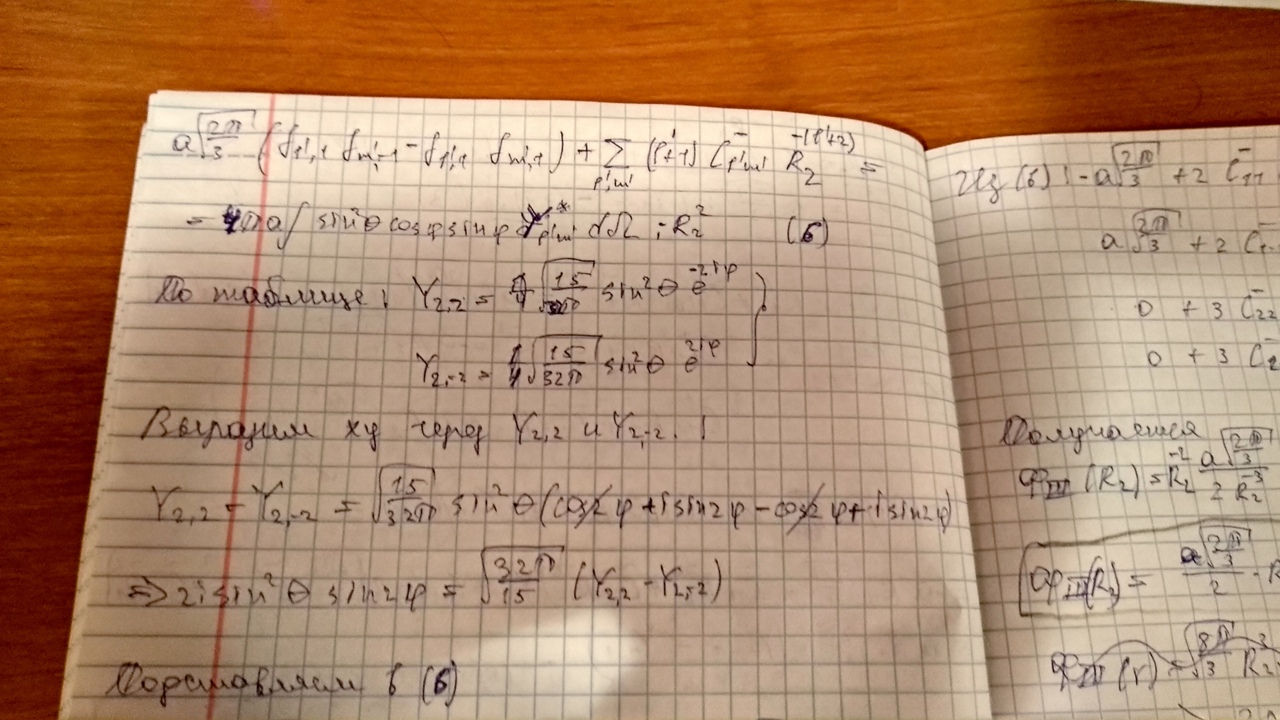 a√(2π/3) (δ_{l',1} δ_{m',-1} - δ_{l',1} δ_{m',1}) + Σ_{l'm'} (l'+1) C⁻_{l'm'} R_2^{-(l'+2)} =
= 4πa∫ sin²θ cosφ sinφ Y*_{l'm'} dΩ · R_2² (6)
По таблице: Y_{2,2} = √(15/32π) sin²θ e^{-2iφ}
Y_{2,-2} = √(15/32π) sin²θ e^{2iφ}
Выразим xy через Y_{2,2} и Y_{2,-2}:
Y_{2,2} - Y_{2,-2} = √(15/32π) sin²θ (cos2φ + i sin2φ - cos2φ + i sin2φ)
=> 2i sin²θ sin2φ = √(32π/15) (Y_{2,2} - Y_{2,-2})
Подставляем в (6)
Из (6): -a√(2π/3) + 2 C⁻_{11}
a√(2π/3) + 2 C⁻_{1-
0 + 3 C⁻_{22
0 + 3 C⁻_{2
Получается
φ_III (R_2) = R_2^{-2} a√(2π/3) / 2 R_2^{-3}
φ_III (R_2) = a√(2π/3) / 2 · R
φ_III (r) = √(8π/3) R_2³